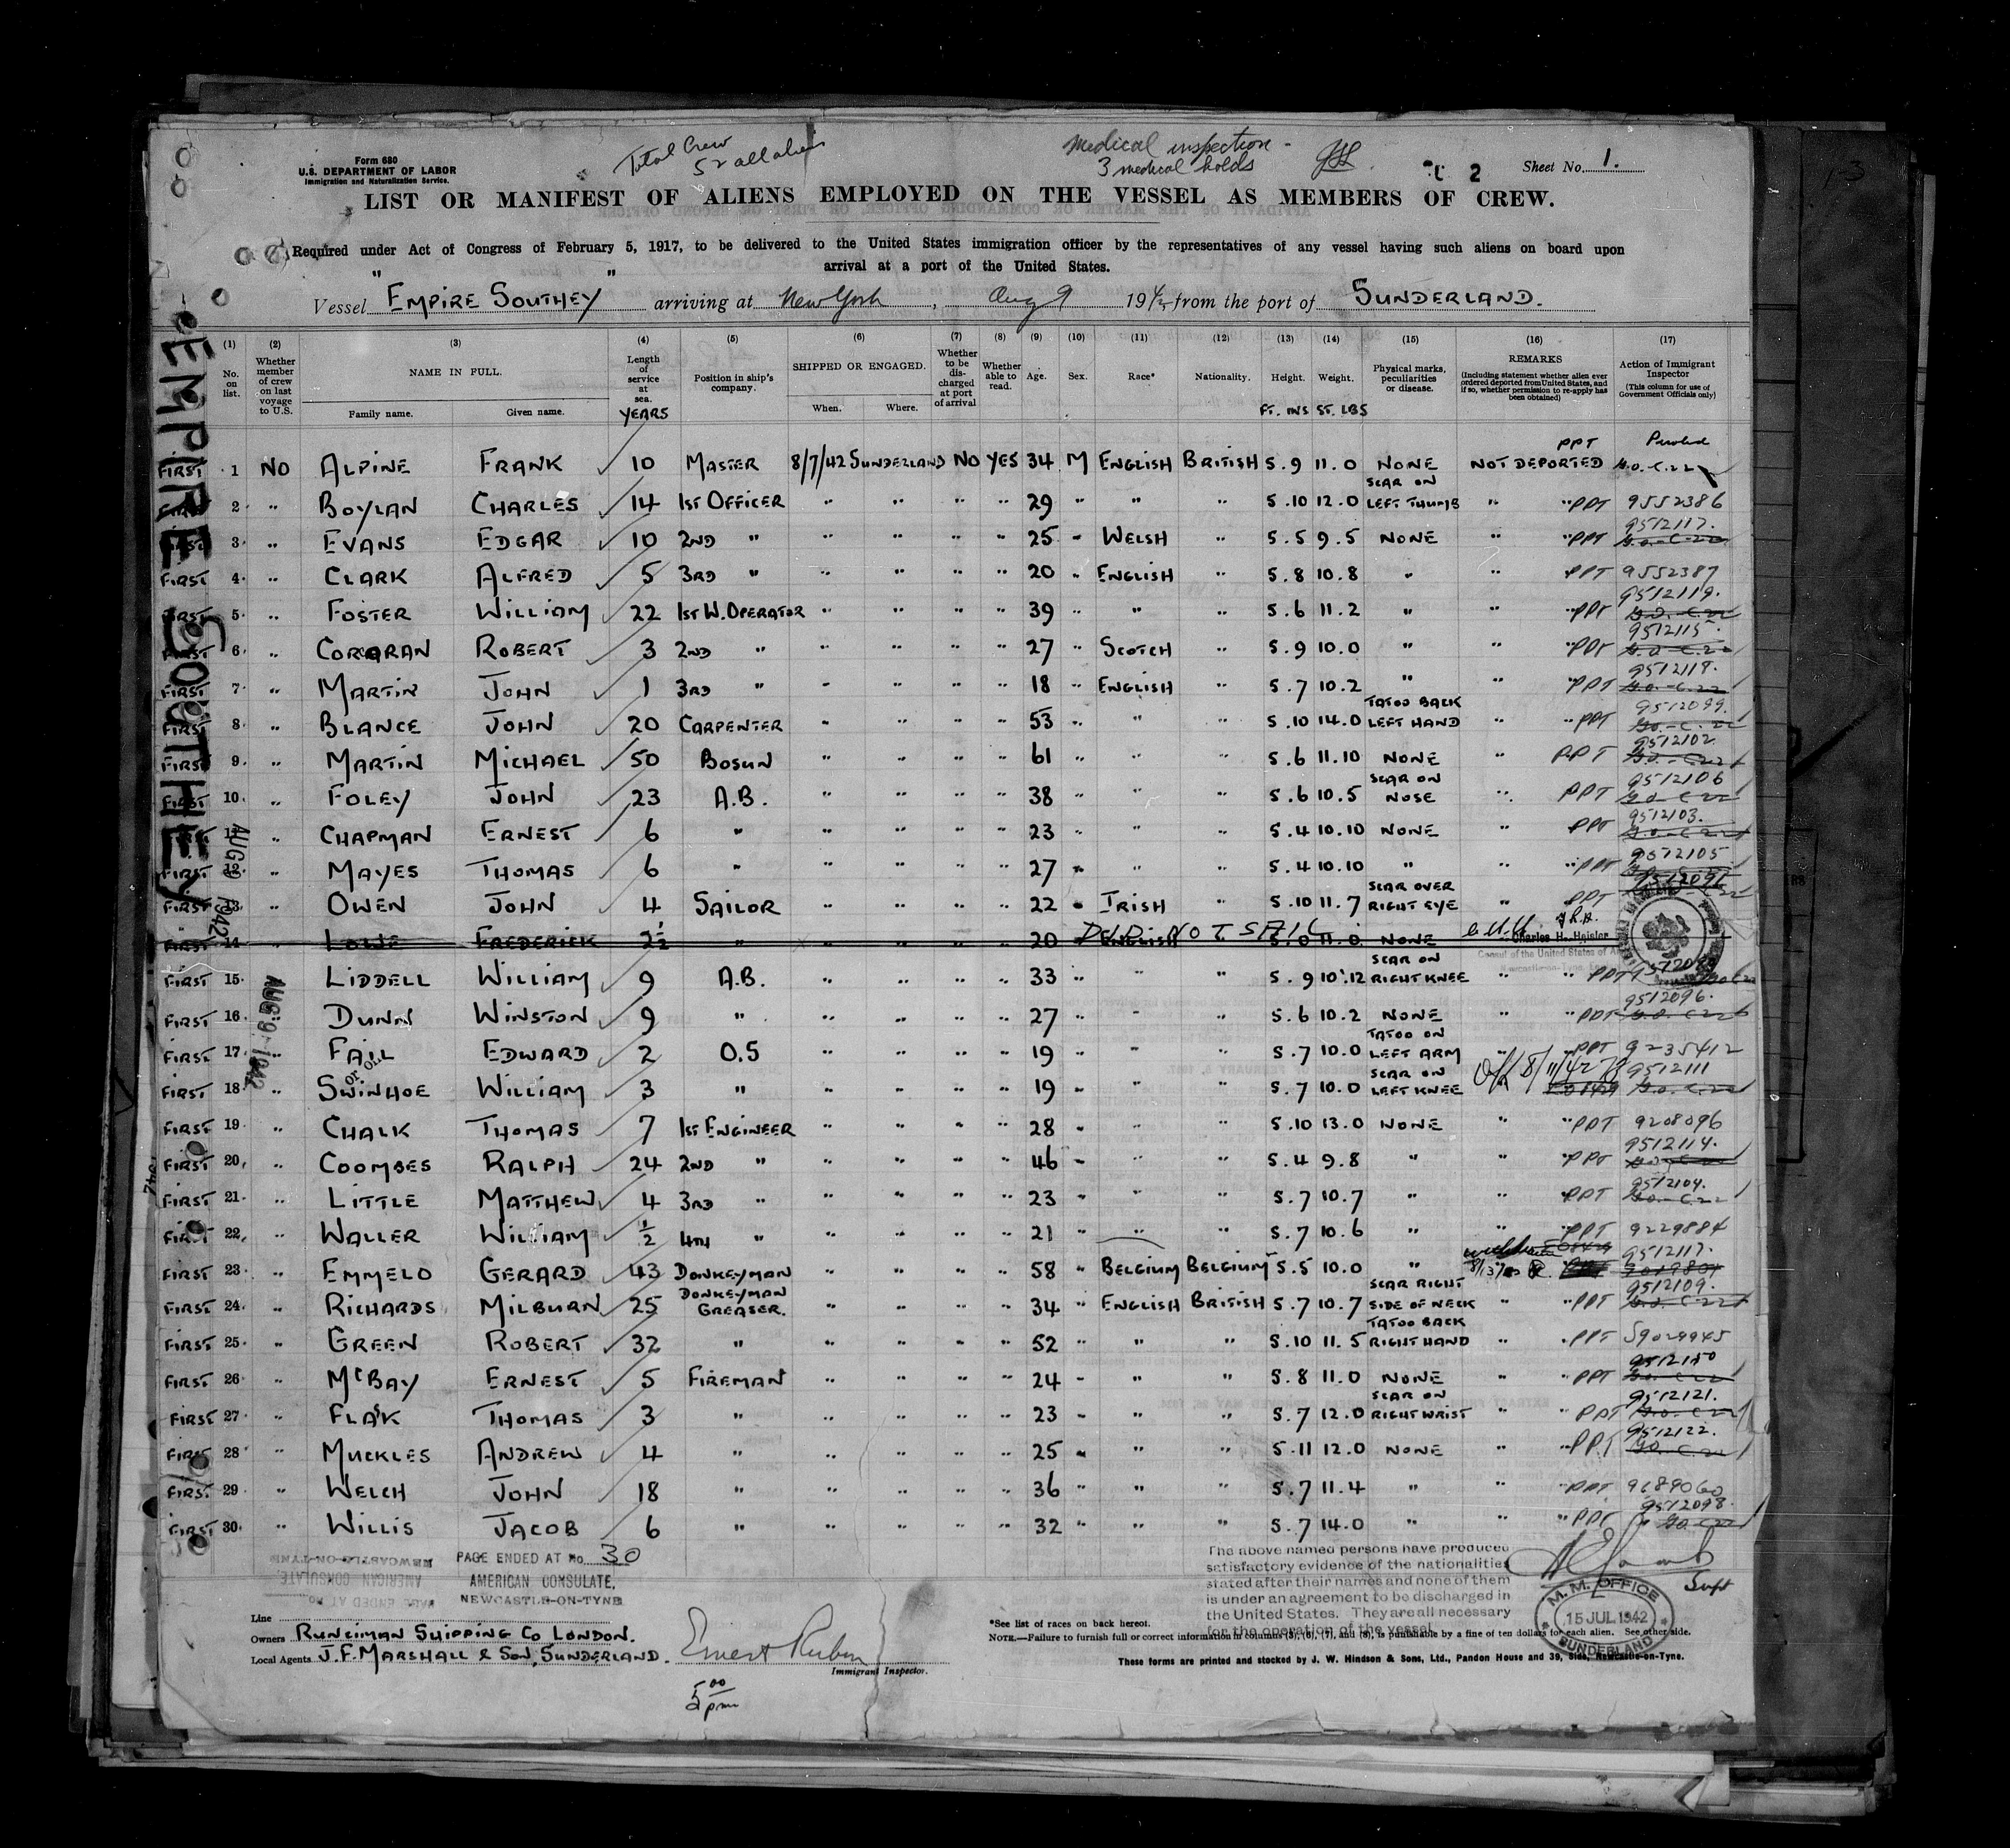 Total Crew
52 all aliens
Medical inspection -
3 medical holds
Form 680
U.S. DEPARTMENT OF LABOR
Immigration and Naturalization Service.
2
Sheet No. 1.
LIST OR MANIFEST OF ALIENS EMPLOYED ON THE VESSEL AS MEMBERS OF CREW.
Required under Act of Congress of February 5, 1917, to be delivered to the United States immigration officer by the representatives of any vessel having such aliens on board upon
arrival at a port of the United States.
Vessel "EMPIRE SOUTHEY" arriving at New York, Aug 9 1942, from the port of SUNDERLAND.
EMPIRE SOUTHEY
AUG 9 1942
AUG 9 1942
(1) No. on list. (2) Whether member of crew on last voyage to U.S. (3) NAME IN FULL. Family name. Given name. (4) Length of service at sea. YEARS (5) Position in ship's company. (6) SHIPPED OR ENGAGED. When. Where. (7) Whether to be discharged at port of arrival (8) Whether able to read. (9) Age. (10) Sex. (11) Race* (12) Nationality. (13) Height. FT. INS (14) Weight. ST. LBS (15) Physical marks, peculiarities or disease. (16) REMARKS (Including statement whether alien ever ordered deported from United States, and if so, whether permission to re-apply has been obtained) (17) Action of Immigrant Inspector (This column for use of Government Officials only)
FIRST 1 NO ALPINE FRANK 10 MASTER 8/7/42 SUNDERLAND NO YES 34 M ENGLISH BRITISH 5.9 11.0 NONE NOT DEPORTED PPT
FIRST 2 " BOYLAN CHARLES 14 1ST OFFICER " " " " 29 " " " 5.10 12.0 SCAR ON LEFT THUMB " " PPT 9552386
FIRST 3 " EVANS EDGAR 10 2ND " " " " " 25 " WELSH " 5.5 9.5 NONE " " PPT 9512117.
FIRST 4 " CLARK ALFRED 5 3RD " " " " " 20 " ENGLISH " 5.8 10.8 " " PPT 9552387
FIRST 5 " FOSTER WILLIAM 22 1ST W.OPERATOR " " " " 39 " " " 5.6 11.2 " " " PPT 9512119.
FIRST 6 " CORCORAN ROBERT 3 2ND " " " " " 27 " SCOTCH " 5.9 10.0 " " " PPT 9512115.
FIRST 7 " MARTIN JOHN 1 3RD " " " " " 18 " ENGLISH " 5.7 10.2 " " " PPT 9512118.
FIRST 8 " BLANCE JOHN 20 CARPENTER " " " " 53 " " " 5.10 14.0 TATOO BACK LEFT HAND " " PPT 9512099.
FIRST 9 " MARTIN MICHAEL 50 BOSUN " " " " 61 " " " 5.6 11.10 NONE " PPT 9512102
FIRST 10 " FOLEY JOHN 23 A.B. " " " " 38 " " " 5.6 10.5 SCAR ON NOSE " PPT 9512106
FIRST 11 " CHAPMAN ERNEST 6 " " " " " 23 " " " 5.4 10.10 NONE " PPT 9512103.
FIRST 12 " MAYES THOMAS 6 " " " " " 27 " " " 5.4 10.10 " " " PPT 9512105
FIRST 13 " OWEN JOHN 4 SAILOR " " " " 22 " IRISH " 5.10 11.7 SCAR OVER RIGHT EYE " PPT
FIRST 14 " LOWE FREDERICK 2½ " " " " " 20 ENGLISH DID NOT SAIL 11.0 NONE Charles H. Heisler
Consul of the United States of
Newcastle-on-Tyne
FIRST 15 " LIDDELL WILLIAM 9 A.B. " " " " 33 " " " 5.9 10.12 SCAR ON RIGHT KNEE " " PPT
FIRST 16 " DUNN WINSTON 9 " " " " " 27 " " " 5.6 10.2 NONE " " PPT 9512096.
FIRST 17 " FAIL EDWARD 2 O.S " " " " 19 " " " 5.7 10.0 TATOO ON LEFT ARM " PPT 9235412
FIRST 18 " SWINHOE WILLIAM 3 " " " " " 19 " " " 5.7 10.0 SCAR ON LEFT KNEE 9512111
FIRST 19 " CHALK THOMAS 7 1ST ENGINEER " " " " 28 " " " 5.10 13.0 NONE " " PPT 9208096
FIRST 20 " COOMBES RALPH 24 2ND " " " " " 46 " " " 5.4 9.8 " " " PPT 9512114.
FIRST 21 " LITTLE MATTHEW 4 3RD " " " " " 23 " " " 5.7 10.7 " " " PPT 9512104.
FIRST 22 " WALLER WILLIAM ½ 4TH " " " " " 21 " " " 5.7 10.6 " " " PPT 9229884
FIRST 23 " EMMELO GERARD 43 DONKEYMAN " " " " 58 " BELGIUM BELGIUM 5.5 10.0 " 9512117.
FIRST 24 " RICHARDS MILBURN 25 DONKEYMAN GREASER. " " " " 34 " ENGLISH BRITISH 5.7 10.7 SCAR RIGHT SIDE OF NECK " " PPT 9512109.
FIRST 25 " GREEN ROBERT 32 " " " " " 52 " " " 5.10 11.5 TATOO BACK RIGHT HAND " PPT
FIRST 26 " McBAY ERNEST 5 FIREMAN " " " " 24 " " " 5.8 11.0 NONE " " PPT
FIRST 27 " FLASK THOMAS 3 " " " " " 23 " " " 5.7 12.0 SCAR ON RIGHT WRIST " " PPT 9512121.
FIRST 28 " MUCKLES ANDREW 4 " " " " " 25 " " " 5.11 12.0 NONE " " PPT 9512122.
FIRST 29 " WELCH JOHN 18 " " " " " 36 " " " 5.7 11.4 " " " PPT 9689060
FIRST 30 " WILLIS JACOB 6 " " " " " 32 " " " 5.7 14.0 " " " PPT 9512098.
PAGE ENDED AT No. 30
AMERICAN CONSULATE,
NEWCASTLE-ON-TYNE
The above named persons have produced
satisfactory evidence of the nationalities
stated after their names and none of them
is under an agreement to be discharged in
the United States. They are all necessary
for the operation of the vessel
Supt
M. M. OFFICE
15 JUL 1942
SUNDERLAND
Line
Owners RUNCIMAN SHIPPING CO LONDON.
Local Agents J.F. MARSHALL & SON, SUNDERLAND.
Ernest Rubin
Immigrant Inspector.
5 00 pm
*See list of races on back hereof.
NOTE.—Failure to furnish full or correct information in columns (3), (6), (7), and (8), is punishable by a fine of ten dollars for each alien. See other side.
These forms are printed and stocked by J. W. Hindson & Sons, Ltd., Pandon House and 39, Side, Newcastle-on-Tyne.